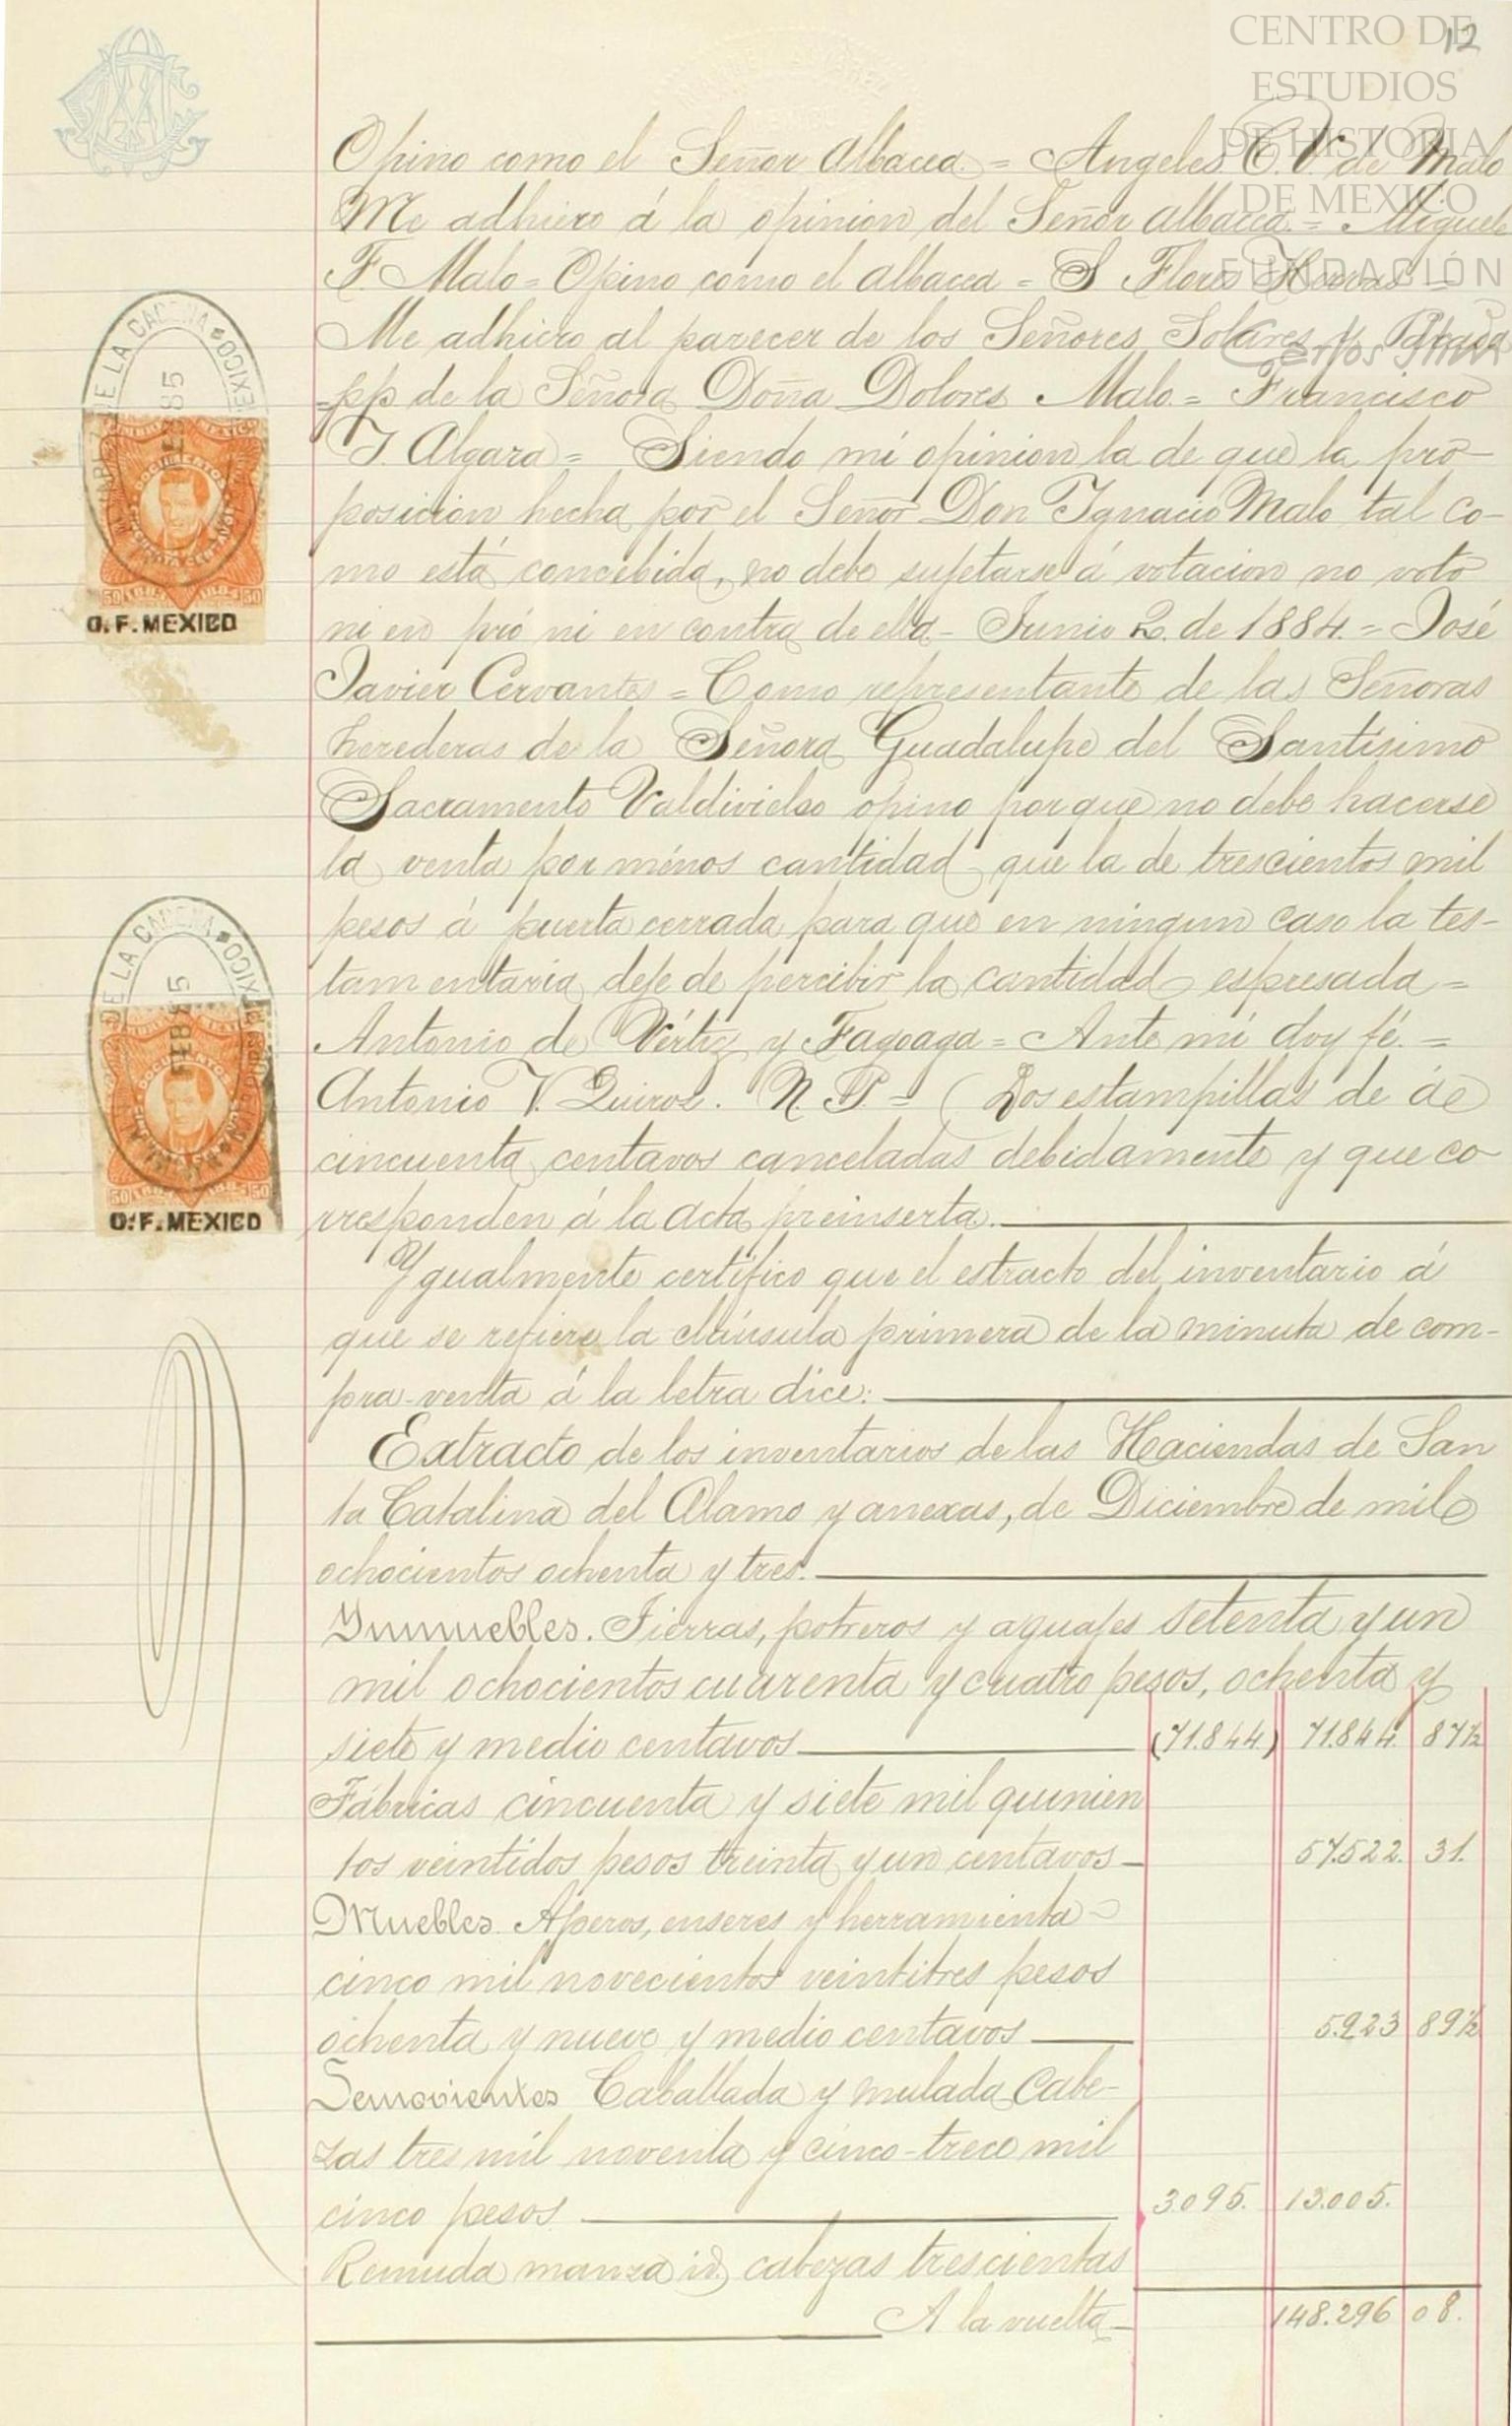 CENTRO DE
ESTUDIOS
DE HISTORIA
DE MEXICO
FUNDACIÓN
Carlos Slim
12
Opino como el Señor Albacea = Angeles C. V. de Malo
Me adhiero á la opinion del Señor albacea = Miguel
F. Malo = Opino como el albacea = S Flores
Me adhiero al parecer de los Señores Solares y
pp de la Señora Doña Dolores Malo = Francisco
J. Algara = Siendo mi opinion la de que la pro-
posicion hecha por el Señor Don Ygnacio Malo tal co-
mo está concebida, no debe sujetarse á votacion no voto
ni en pró ni en contra de ella - Junio 2 de 1884 = José
Javier Cervantes = Como representante de las Señoras
herederas de la Señora Guadalupe del Santísimo
Sacramento Valdivielso opino porque no debe hacerse
la venta por ménos cantidad que la de trescientos mil
pesos á puerta cerrada para que en ningun caso la tes-
tamentaria deje de percibir la cantidad espresada =
Antonio de Vértiz y Fagoaga = Ante mi doy fé. =
Antonio V. Quiroz. N. P. = (Dos estampillas de áe
cincuenta centavos canceladas debidamente y que co
rresponden á la acta preinserta.
Ygualmente certifico que el estracto del inventario á
que se refiere la cláusula primera de la minuta de com-
pra-venta á la letra dice:
Extracto de los inventarios de las Haciendas de San
ta Catalina del Alamo y anexas, de Diciembre de mil
ochocientos ochenta y tres.
Inmuebles. Tierras, potreros y aguajes setenta y un
mil ochocientos cuarenta y cuatro pesos, ochenta y
siete y medio centavos (71.844) 71.844. 87½
Fábricas cincuenta y siete mil quinien
tos veintidos pesos treinta y un centavos 57.522. 31.
Muebles. Aperos, enseres y herramienta
cinco mil novecientos veintitres pesos
ochenta y nueve y medio centavos 5.923 89½
Semovientes Caballada y mulada Cabe-
zas tres mil noventa y cinco - trece mil
cinco pesos 3.095. 13.005.
Remuda manza id. cabezas trescientas
A la vuelta 148.296 08.
DE LA CADENA MEXICO
1885
DOCUMENTOS
50 50
D. F. MEXICO
DE LA CADENA MEXICO
1885
DOCUMENTOS
50 50
D. F. MEXICO